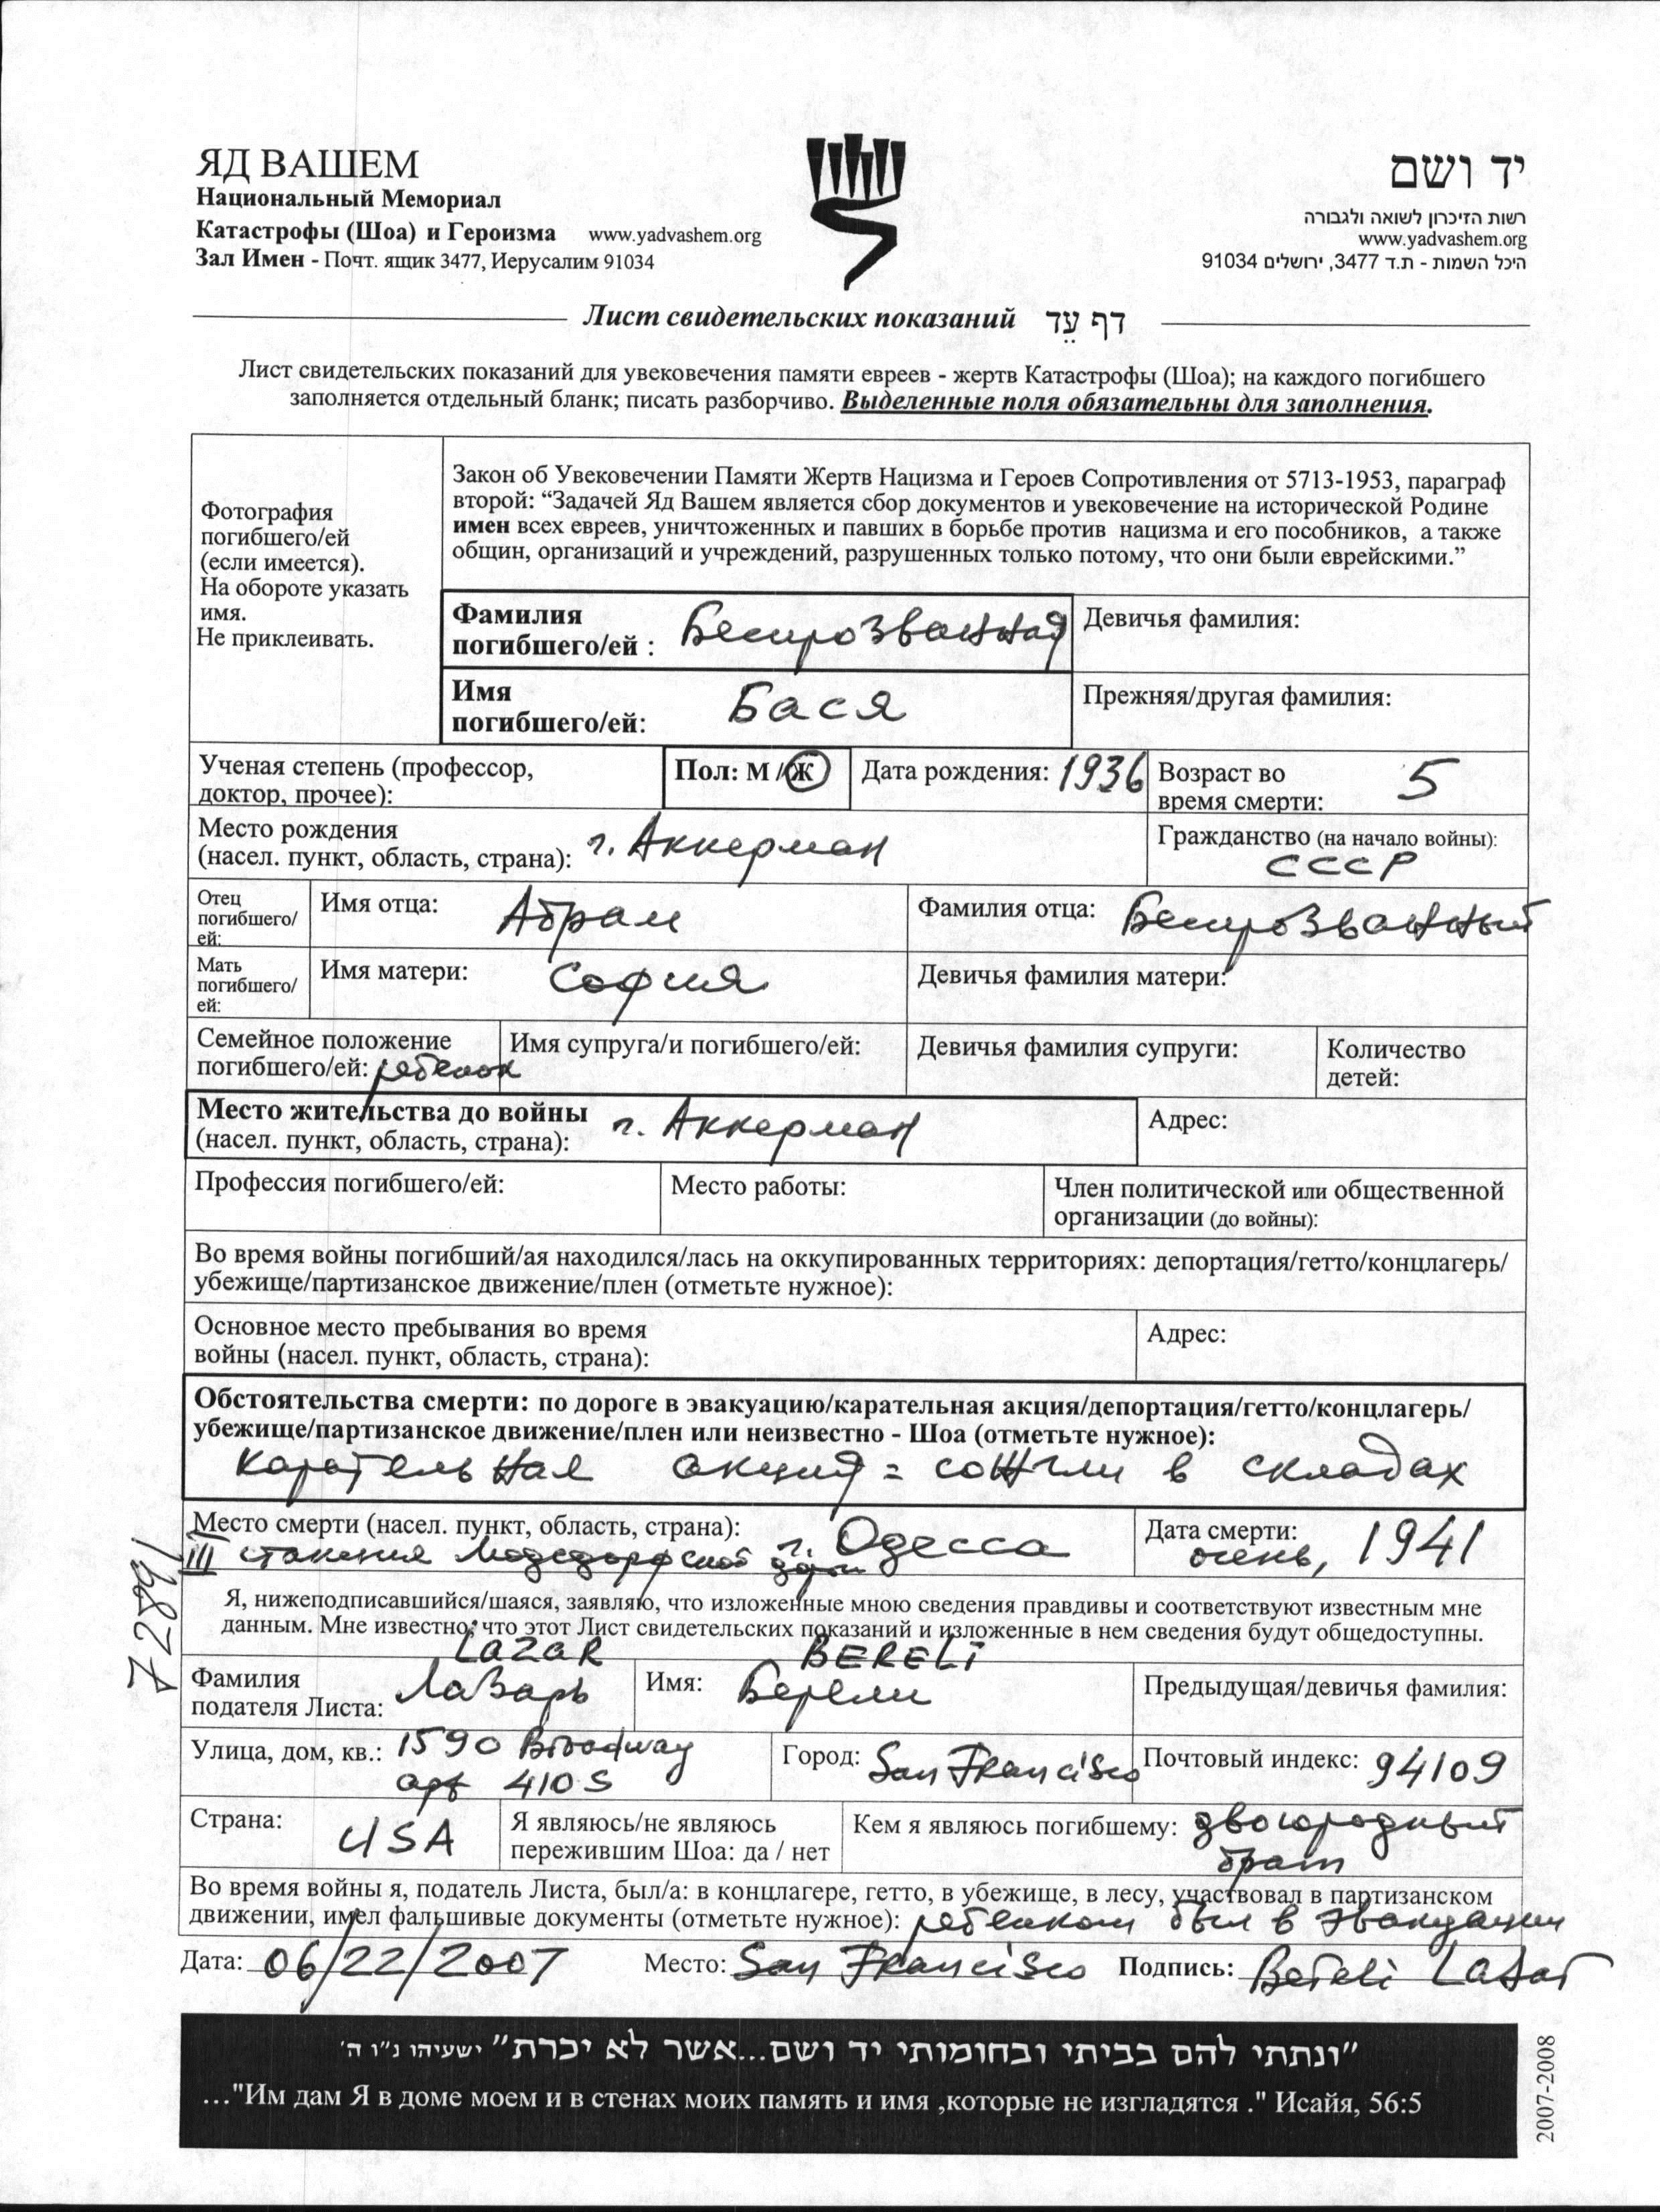 ЯД ВАШЕМ
Национальный Мемориал
Катастрофы (Шоа) и Героизма www.yadvashem.org
Зал Имен - Почт. ящик 3477, Иерусалим 91034
יד ושם
רשות הזיכרון לשואה ולגבורה
www.yadvashem.org
היכל השמות - ת.ד 3477, ירושלים 91034
Лист свидетельских показаний דף עֵד
Лист свидетельских показаний для увековечения памяти евреев - жертв Катастрофы (Шоа); на каждого погибшего
заполняется отдельный бланк; писать разборчиво. Выделенные поля обязательны для заполнения.
Фотография
погибшего/ей
(если имеется).
На обороте указать
имя.
Не приклеивать.
Закон об Увековечении Памяти Жертв Нацизма и Героев Сопротивления от 5713-1953, параграф
второй: “Задачей Яд Вашем является сбор документов и увековечение на исторической Родине
имен всех евреев, уничтоженных и павших в борьбе против нацизма и его пособников, а также
общин, организаций и учреждений, разрушенных только потому, что они были еврейскими.”
Фамилия
погибшего/ей : Беспрозванная
Девичья фамилия:
Имя
погибшего/ей: Бася
Прежняя/другая фамилия:
Ученая степень (профессор,
доктор, прочее):
Пол: М /Ж
Дата рождения: 1936
Возраст во
время смерти: 5
Место рождения
(насел. пункт, область, страна): г. Аккерман
Гражданство (на начало войны):
СССР
Отец
погибшего/
ей:
Имя отца: Абрам
Фамилия отца: Беспрозванный
Мать
погибшего/
ей:
Имя матери: София
Девичья фамилия матери:
Семейное положение
погибшего/ей: ребенок
Имя супруга/и погибшего/ей:
Девичья фамилия супруги:
Количество
детей:
Место жительства до войны
(насел. пункт, область, страна): г. Аккерман
Адрес:
Профессия погибшего/ей:
Место работы:
Член политической или общественной
организации (до войны):
Во время войны погибший/ая находился/лась на оккупированных территориях: депортация/гетто/концлагерь/
убежище/партизанское движение/плен (отметьте нужное):
Основное место пребывания во время
войны (насел. пункт, область, страна):
Адрес:
Обстоятельства смерти: по дороге в эвакуацию/карательная акция/депортация/гетто/концлагерь/
убежище/партизанское движение/плен или неизвестно - Шоа (отметьте нужное):
Карательная акция = сожгли в складах
Место смерти (насел. пункт, область, страна): г. Одесса
III
Дата смерти:
осень, 1941
72891
Я, нижеподписавшийся/шаяся, заявляю, что изложенные мною сведения правдивы и соответствуют известным мне
данным. Мне известно, что этот Лист свидетельских показаний и изложенные в нем сведения будут общедоступны.
LAZAR BERELI
Фамилия
подателя Листа: Лазарь
Имя: Берели
Предыдущая/девичья фамилия:
Улица, дом, кв.: 1590 Broadway
apt 410 S
Город: San Francisco
Почтовый индекс: 94109
Страна: USA
Я являюсь/не являюсь
пережившим Шоа: да / нет
Кем я являюсь погибшему: двоюродный
брат
Во время войны я, податель Листа, был/а: в концлагере, гетто, в убежище, в лесу, участвовал в партизанском
движении, имел фальшивые документы (отметьте нужное): ребенком был в эвакуации
Дата: 06/22/2007 Место: San Francisco Подпись: Bereli Lazar
"ונתתי להם בביתי ובחומותי יד ושם...אשר לא יכרת" ישעיהו נ"ו ה'
..."Им дам Я в доме моем и в стенах моих память и имя ,которые не изгладятся ." Исайя, 56:5
2007-2008